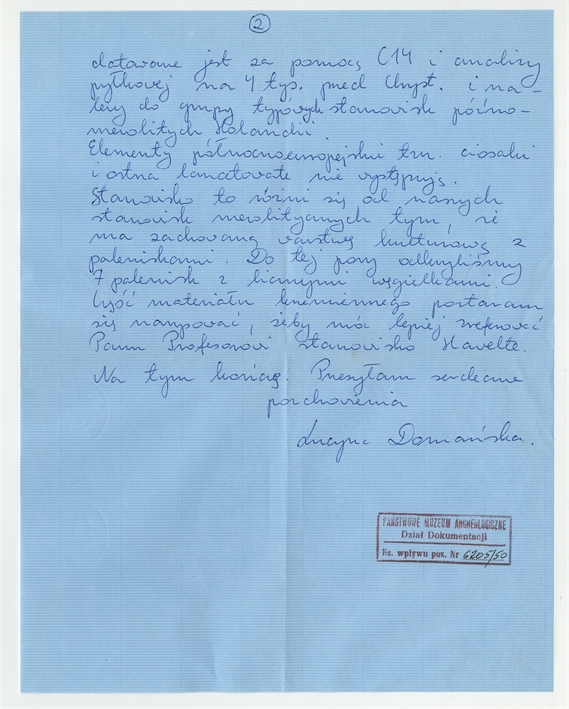 2
datowane jest za pomocą C14 i analizy
pyłkowej na 4 tys. przed Chryst. i na-
leży do grupy typowych stanowisk późno-
mezolitycznych Holandii.
Elementy północnoeuropejskie tzn. ciosaki
i ostrza lancetowate nie występują.
Stanowisko to różni się od naszych
stanowisk mezolitycznych tym, że
ma zachowaną warstwę kulturową z
paleniskami. Do tej pory odkryliśmy
7 palenisk z licznymi węgielkami.
Część materiału krzemiennego postaram
się narysować, żeby móc lepiej zreferować
Panu Profesorowi stanowisko Havelte.
Na tym kończę. Przesyłam serdeczne
pozdrowienia
Lucyna Domańska.
PAŃSTWOWE MUZEUM ARCHEOLOGICZNE
Dział Dokumentacji
Ks. wpływu poz. Nr 6205/50